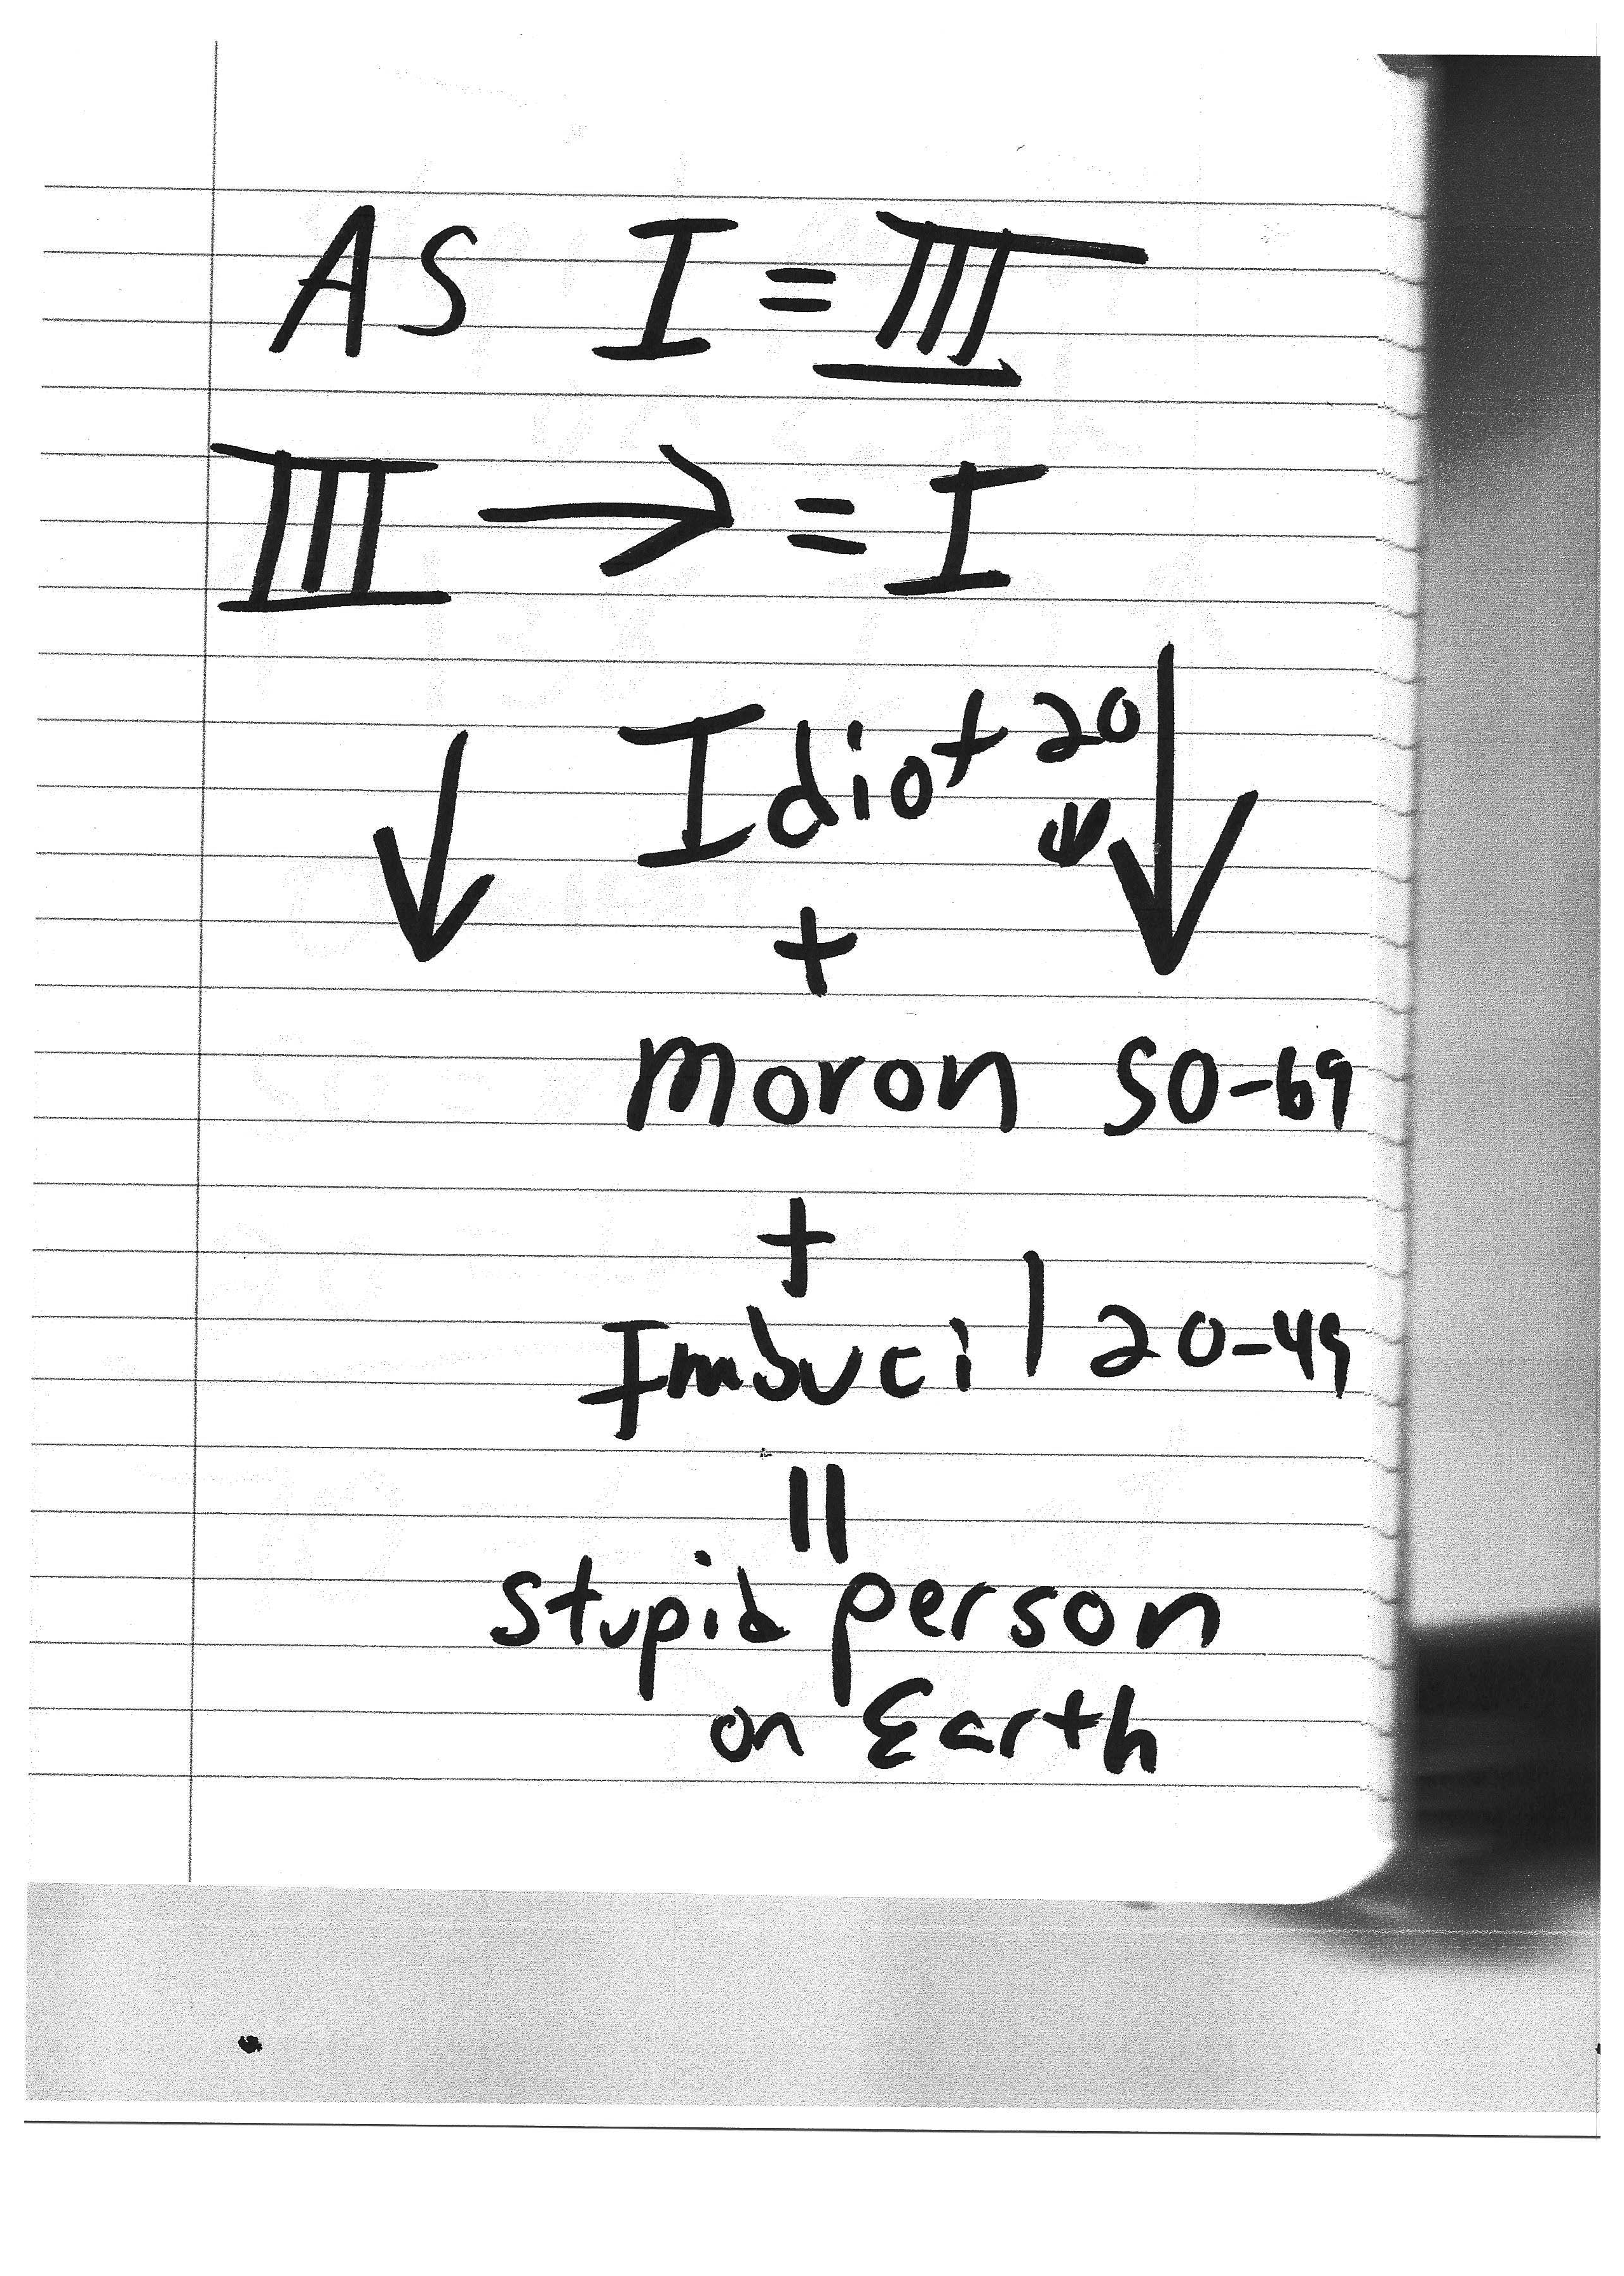 AS I = III
III → = I
↓ Idiot 20 ↓ ↓
+
moron 50-69
+
Imbucil 20-49
||
stupid person
on Earth